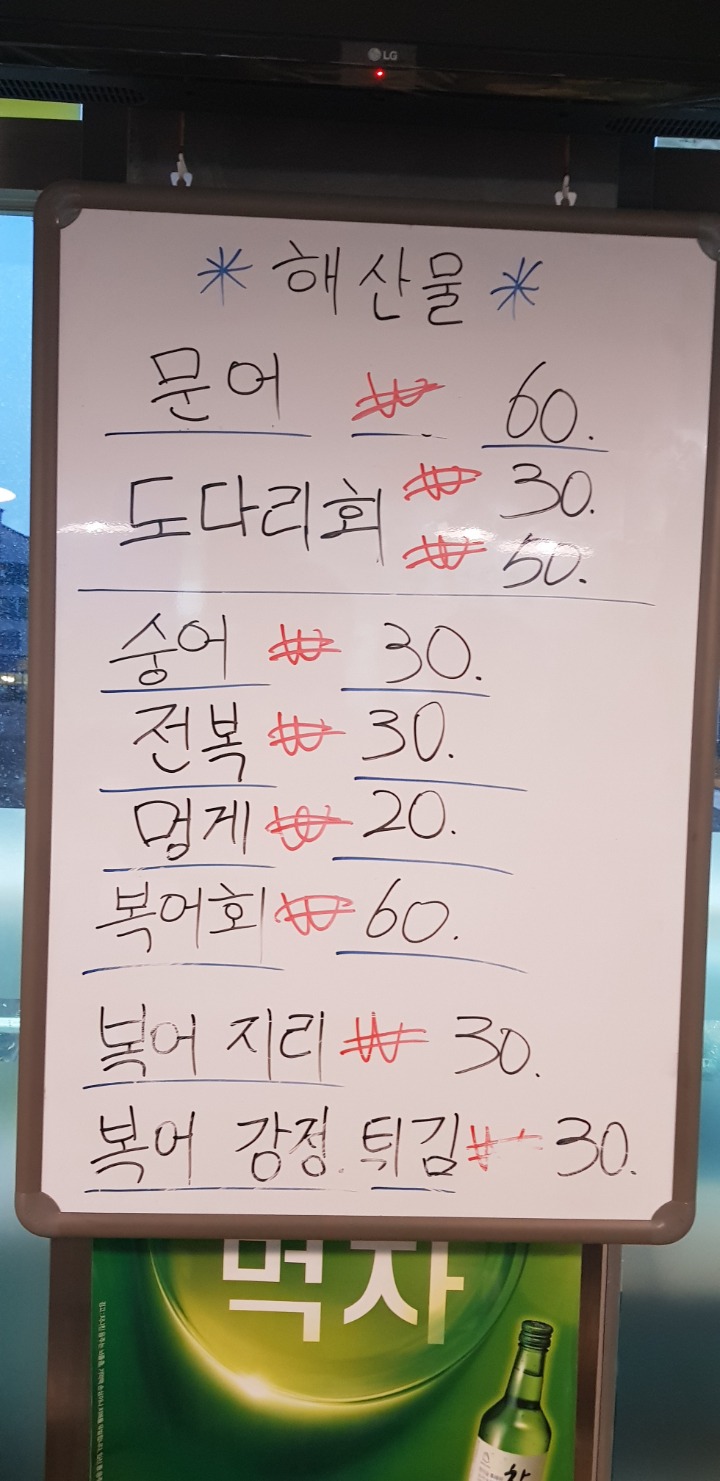 LG
* 해산물 *
문어 ₩ 60.
도다리회 ₩ 30.
₩ 50.
숭어 ₩ 30.
전복 ₩ 30.
멍게 ₩ 20.
복어회 ₩ 60.
복어 지리 ₩ 30.
복어 강정. 튀김 ₩ 30.
먹자
참